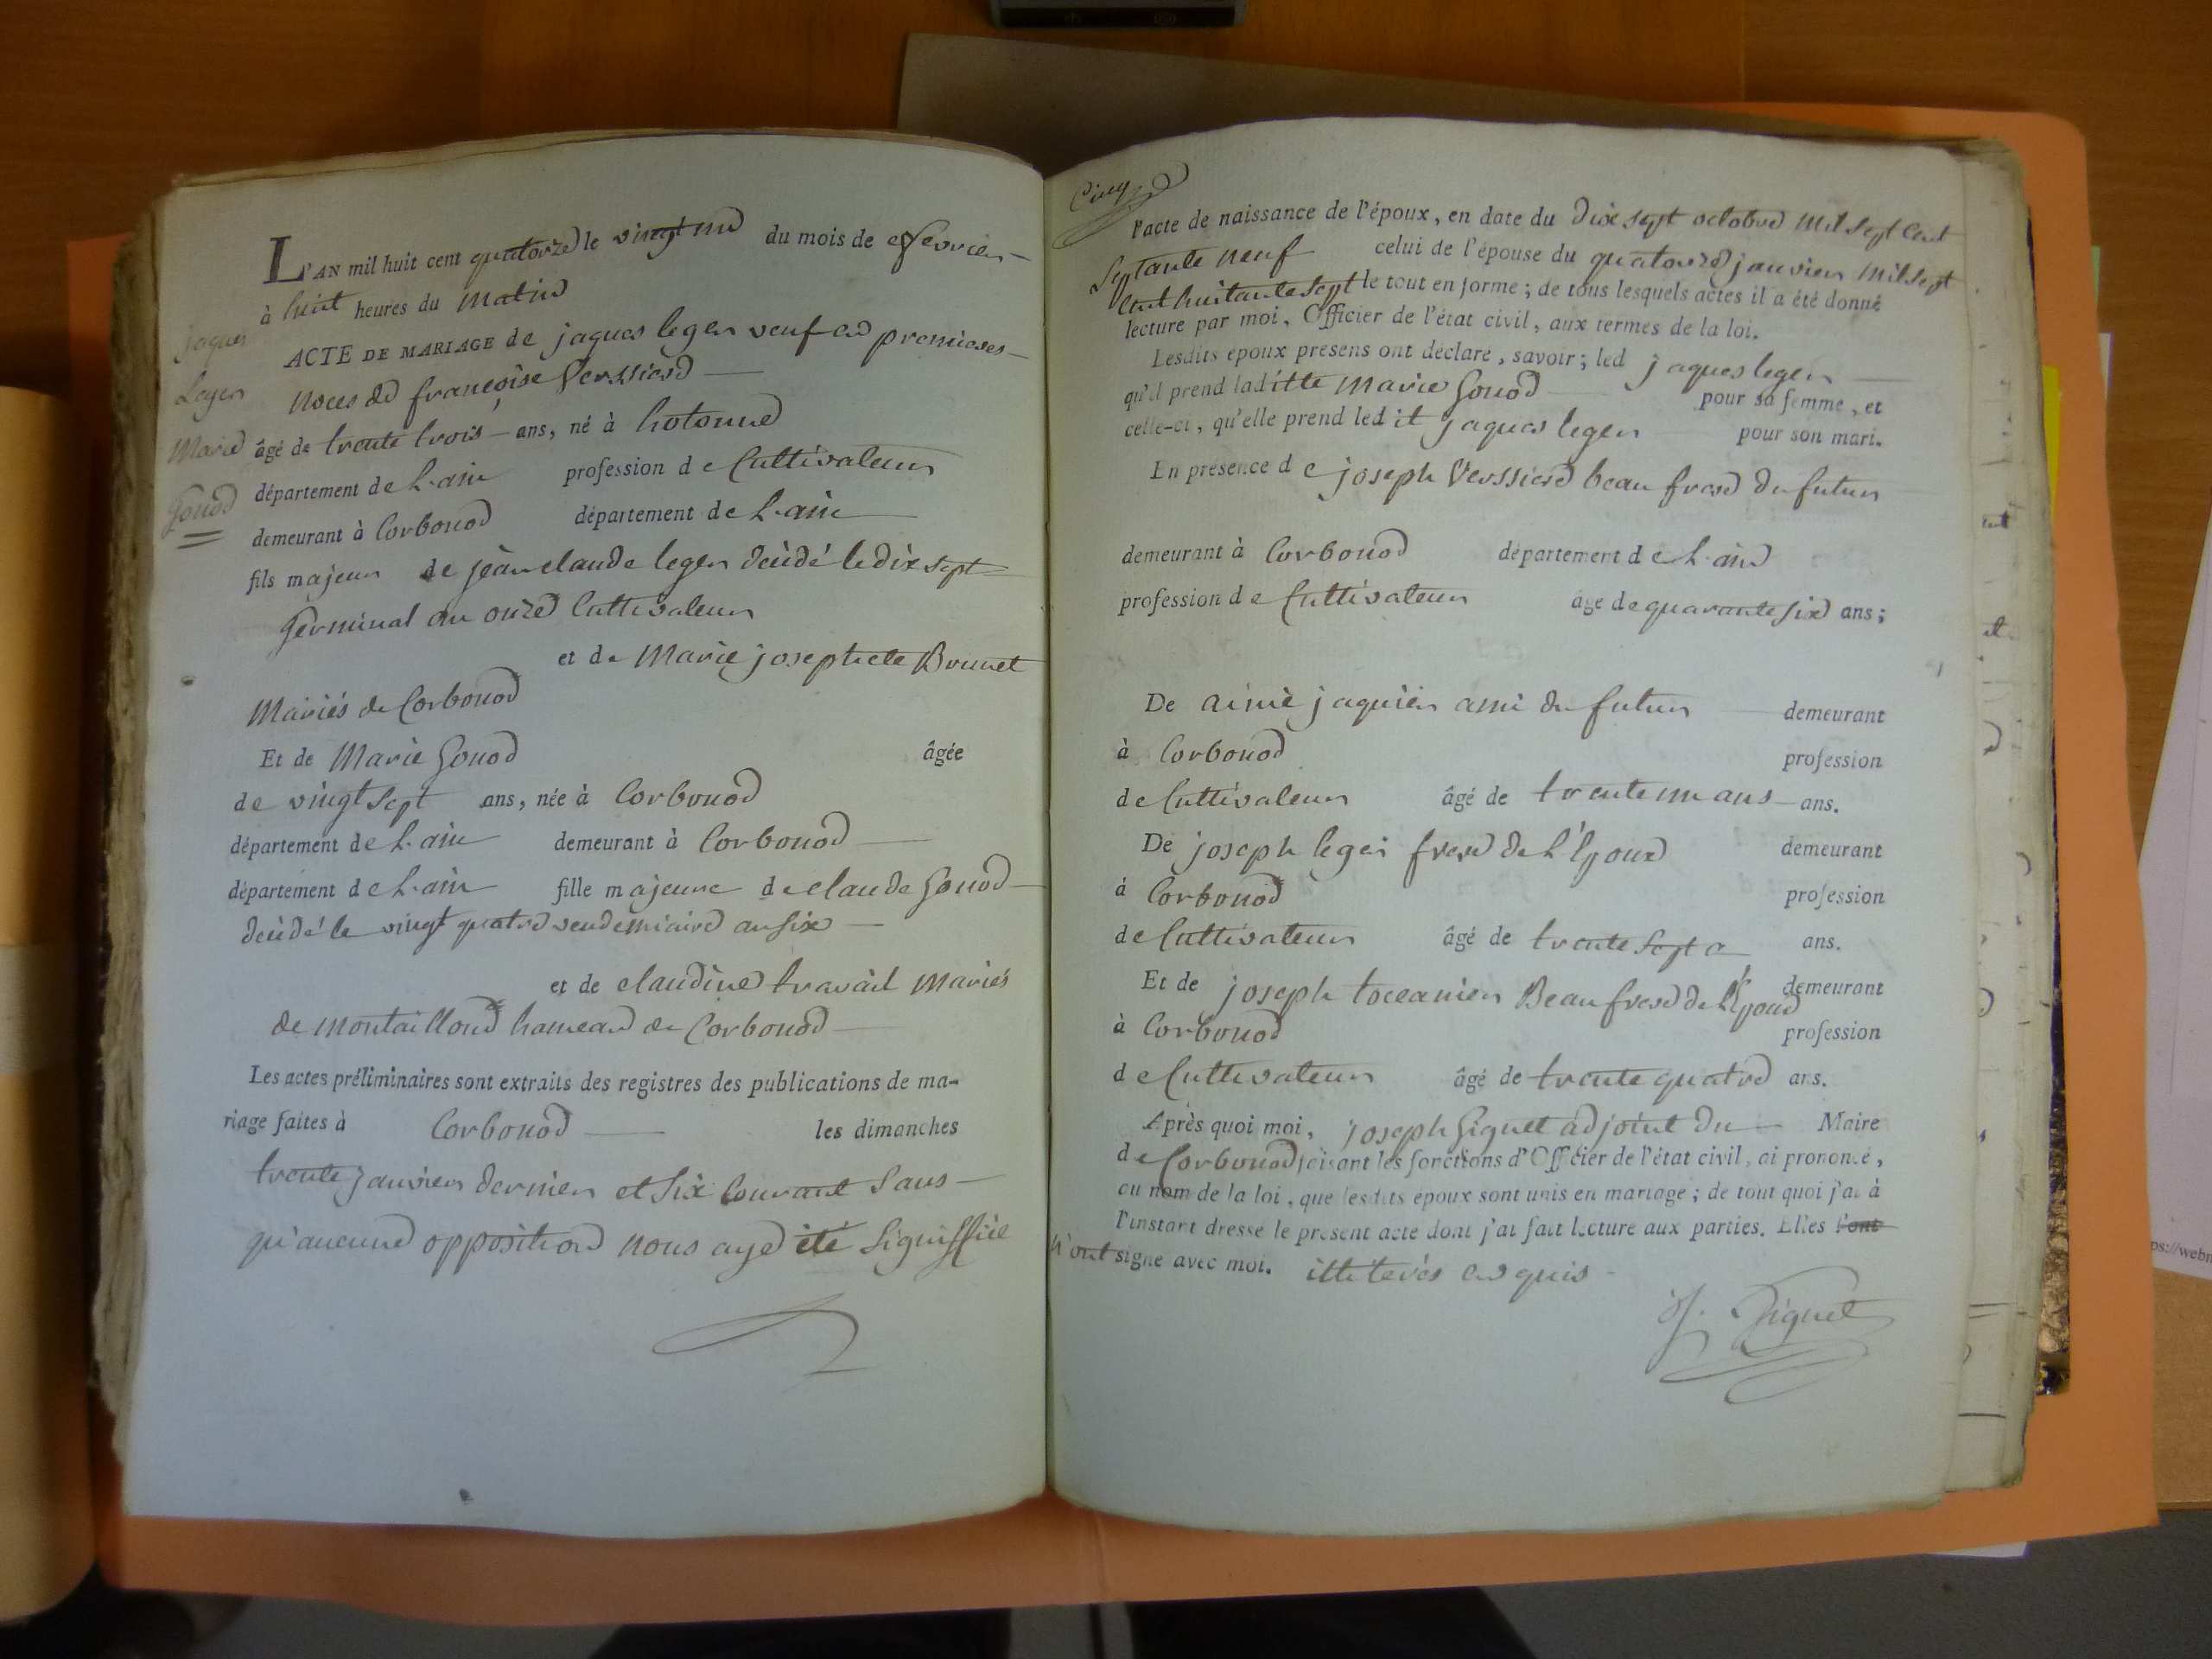 L'AN mil huit cent quatorze le vingt un du mois de fevrier
à huit heures du matin
jaques
Leger
Marie
Gonod
ACTE DE MARIAGE de jaques leger veuf en premieres
noces de françoise Verssiere
âgé de trente trois ans, né à hotonne
département de L'ain profession de Cultivateur
demeurant à Corbonod département de L'ain
fils majeur de jean claude leger décédé le dix sept
Germinal an onze Cultivateur
et de Marie josephete Brunet
Mariés de Corbonod
Et de Marie Gonod âgée
de vingt sept ans, née à Corbonod
département de L'ain demeurant à Corbonod
département de L'ain fille majeure de claude Gonod
décédé le vingt quatre vendemiaire an six
et de claudine travail Mariés
de montaillond hameau de Corbonod
Les actes préliminaires sont extraits des registres des publications de ma-
riage faites à Corbonod les dimanches
trente janvier dernier et six courant sans
qu'aucune opposition nous aye été signiffiée
Cinq
l'acte de naissance de l'époux, en date du dix sept octobre mil sept cent
septante neuf celui de l'épouse du quatorze janvier mil sept
cent huitante sept le tout en forme; de tous lesquels actes il a été donné
lecture par moi, Officier de l'état civil, aux termes de la loi.
Lesdits époux présens ont déclaré, savoir; led jaques leger
qu'il prend laditte Marie Gonod pour sa femme, et
celle-ci, qu'elle prend ledit jaques leger pour son mari.
En présence de joseph Verssiere beau frere du futur
demeurant à Corbonod département de L'ain
profession de Cultivateur âgé de quarante six ans;
De aimé jaquier ami du futur demeurant
à Corbonod profession
de Cultivateur âgé de trente un ans ans.
De joseph leger frere de L'Epoux demeurant
à Corbonod profession
de Cultivateur âgé de trente sept a ans.
Et de joseph Beau frere de L'Epoux demeurant
à Corbonod profession
de Cultivateur âgé de trente quatre ans.
Après quoi moi, joseph Giguet adjoint du Maire
de Corbonod faisant les fonctions d'Officier de l'état civil, ai prononcé,
au nom de la loi, que lesdits époux sont unis en mariage; de tout quoi j'ai à
l'instant dressé le présent acte dont j'ai fait lecture aux parties. Elles l'ont
n'ont signé avec moi. illiterés enquis
J. Giguet
ps://webm